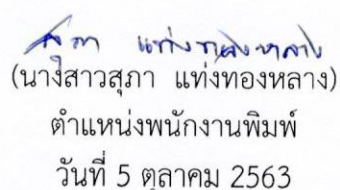 สุภา แท่งทองหลาง
(นางสาวสุภา แท่งทองหลาง)
ตำแหน่งพนักงานพิมพ์
วันที่ 5 ตุลาคม 2563